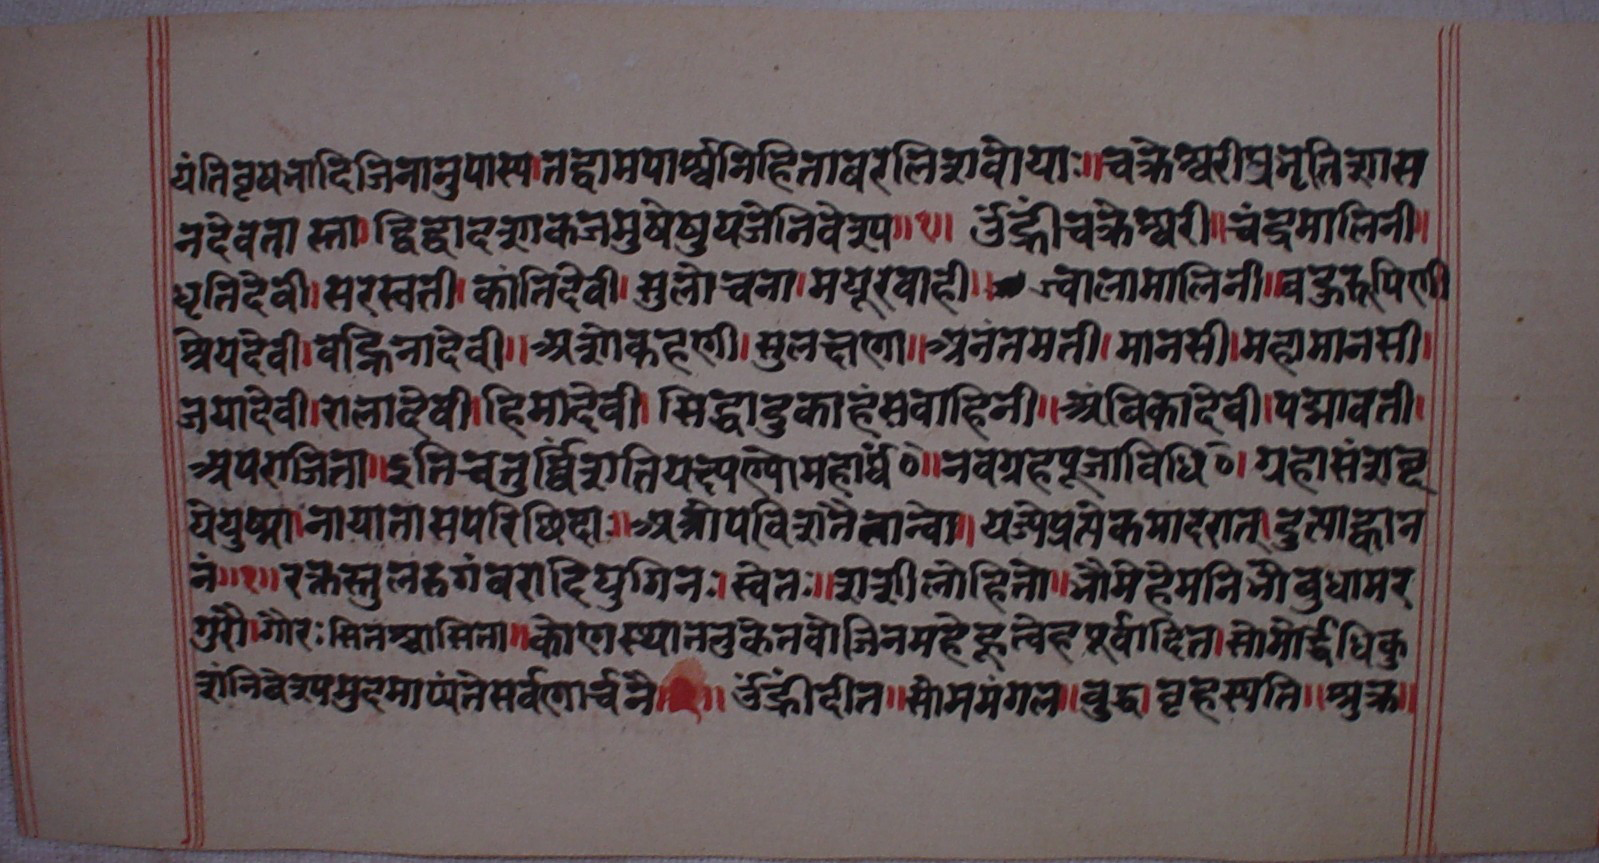 यंति वृषभादिजिनानुपास्य।तद्वामपार्श्वनिहितावरलिशवोयाः॥चक्रेश्वरीप्रभृतिशास
नदेवतास्ता।द्विद्वादशकजमुषेषुयजेनिवेश्य॥१। उँह्रीं चक्रेश्वरी॥चंद्रमालिनी॥
धृतिदेवी।सरस्वती।कांतिदेवी।सुलोचना।मयूरवाही॥ज्वालामालिनी॥बहुरूपिणी
श्रेयदेवी।वह्निनादेवी॥अशोकहणी।सुलक्षणा॥अनंतमती।मानसी।महामानसी।
जयादेवी।रालादेवी।हिमादेवी। सिद्धाडुकाहंसवाहिनी॥अंविकादेवी।पद्मावती।
अपराजिता॥इतिचतुर्विंशति महार्घं०॥नवग्रहपूजाविधि०। ग्रहासंशब्द
येयुष्मा।नायातासपरिछिदाः॥अत्रोपविशतैतान्वो॥ यज्येप्रत्येकमादरात्।
नं॥१॥रक्तस्तु युगिनः।स्वेतः॥शशीलोहितो॥भौमेहेमनिभौवुधामर
गुरौ।गौरः सितश्चासिता॥कोणस्थान तुकेतवोजिनमहे पूर्वादित।सोमोर्द्धधिकु
शंनिवेश्यमुदमाप्यंतेसर्वणार्चनै॥ उँह्रींदीत॥सोममंगल॥वुद्ध।वृहस्पति॥श्रुक्र॥